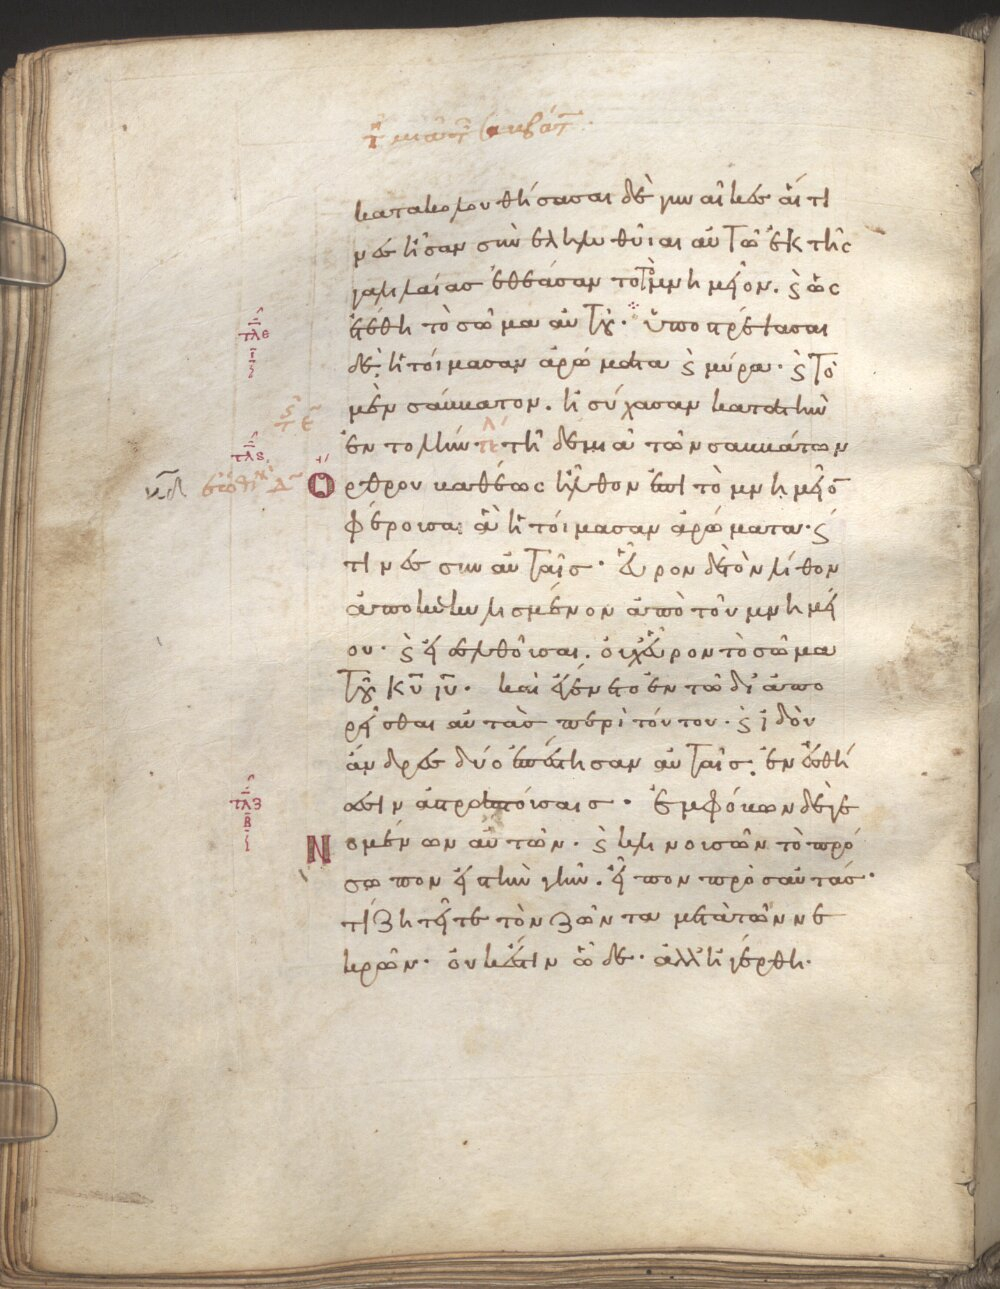 τῇ μιᾷ τῶν σαββάτ
κατακολουθήσασαι δὲ γυναῖκες αἵτι
νες ἦσαν συνεληλυθῦιαι αὐτῶ ἐκ τῆς
γαλιλαίας ἐθεάσαν το τὸ μνημεῖον. ϗ ὡς
ἐτέθη τὸ σῶμα αὐτοῦ· ὑποστρέψασαι
δὲ ἡτοίμασαν ἀρώματα ϗ μύρα· ϗ τὸ
μὲν σάββατον. ἡσύχασαν κατὰ τὴν
ἐντολήν· τῆ δὲ μιᾶ τῶν σαββάτων
ὄρθρου βαθέως ἦλθον ἐπὶ τὸ μνημεῖο
φέρουσαι ἃ ἡτοίμασαν ἀρώματα· ϗ
τινες σὺν αὐταῖς· εὗρον δὲ τὸν λίθον
ἀποκεκυλισμένον ἀπὸ τοῦ μνημεί
ου· ϗ εἰσελθοῦσαι. οὐχ εὗρον τὸ σῶμα
τοῦ κυ ιυ· καὶ ἐγένετο ἐν τῶ διαπο
ρεῖσθαι αὐτὰς περὶ τούτου· ϗ ἰδοὺ
ἄνδρες δύο ἐπέστησαν αὐταῖς. ἐν ἐσθή
σεσιν ἀστραπτούσαις· ἐμφόβων δὲ γε
νομένων αὐτῶν· ϗ κλινουσῶν τὸ πρό
σωπον εἰς τὴν γῆν. εἶπον πρὸς αὐτάς·
τί ζητεῖτε τὸν ζῶντα μετὰ τῶν νε
κρῶν· οὐκ ἔστιν ὧδε· ἀλλ' ἠγέρθη·
τλε
ι
τλς
τλζ
β
ι